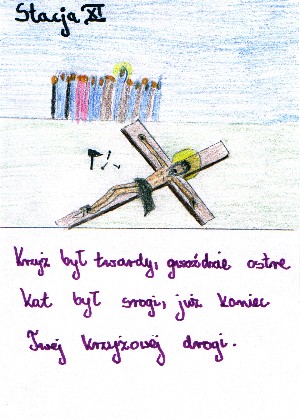 Stacja XI
Krzyż był twardy, gwoździe ostre
Kat był srogi, już koniec
Twej krzyżowej drogi.